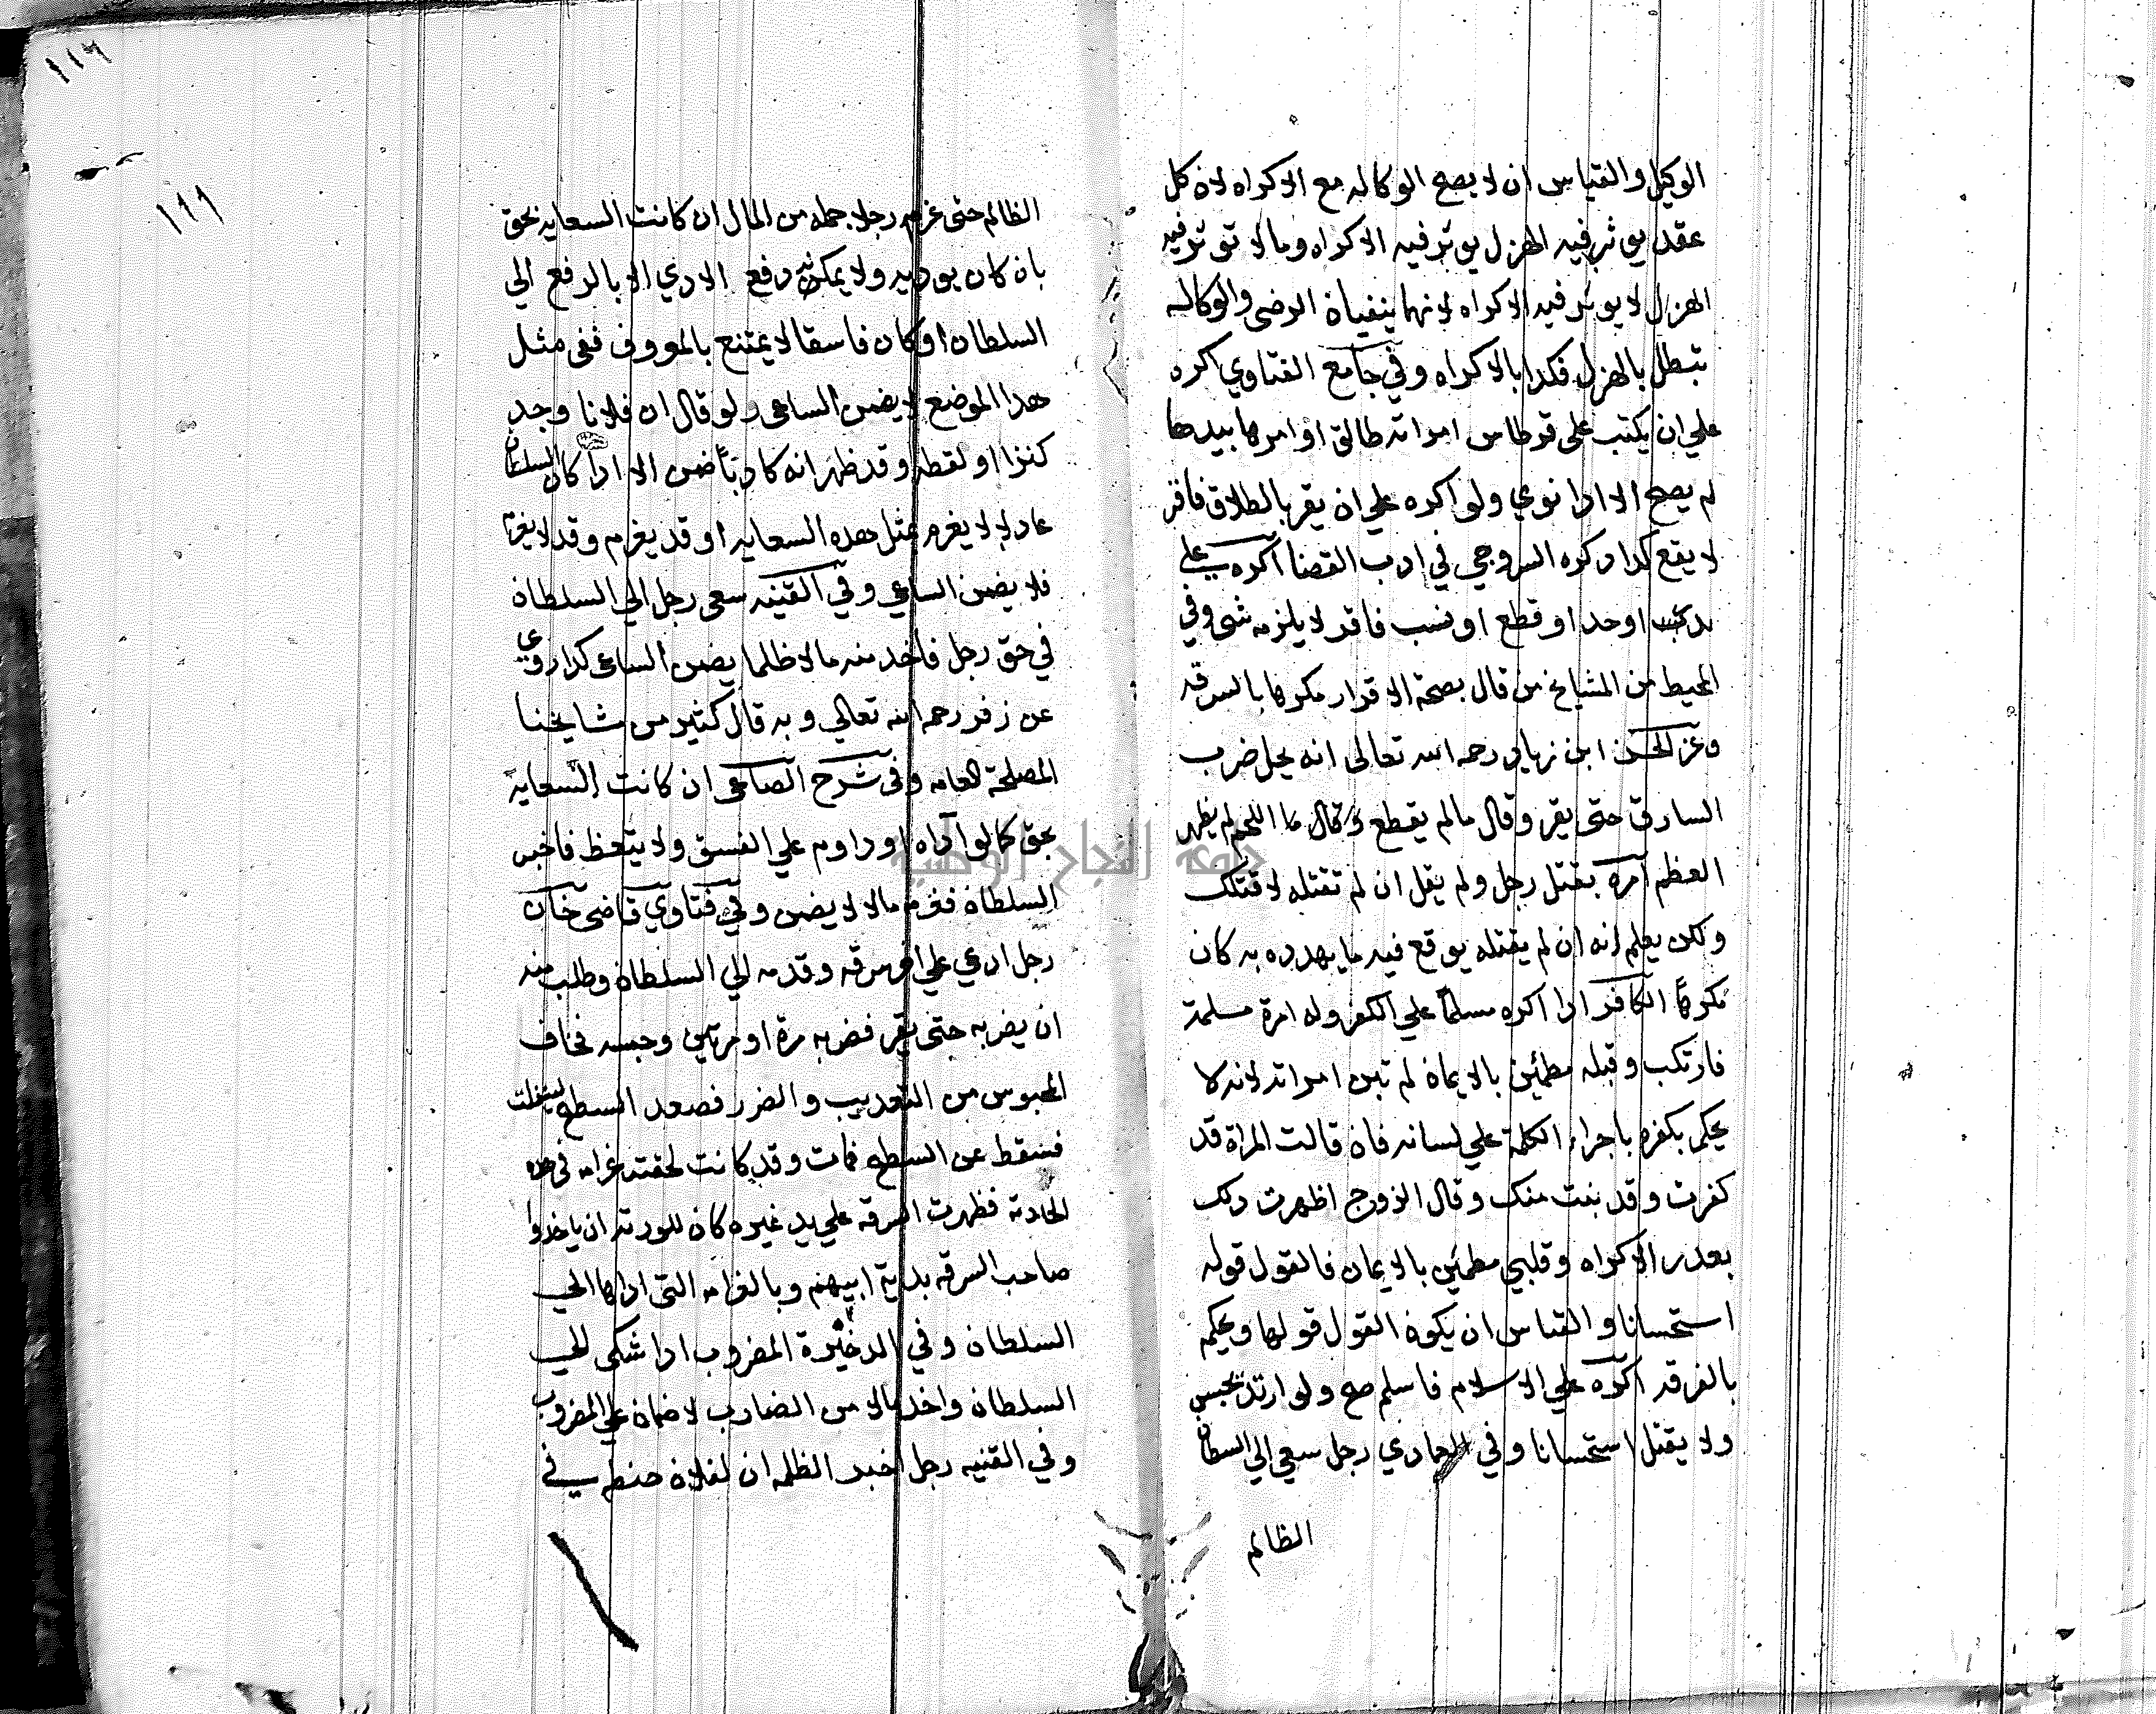 الوكيل والقياس ان لا يصح الوكاله مع الاكراه لان كل
عقد يوثر فيه الهزل يوثر فيه الاكراه وما لا توثر فيه
الهزل لا يوثر فيه الاكراه لانهما ينفيان الرضى والوكاله
تبطل بالهزل فكدا بالاكراه وفي جامع الفتاوي اكره
علي ان يكتب على قرطاس امراته طالق او امرها بيدها
لم يصح الا ادا نوي ولو اكره علي ان يقر بالطلاق فاقر
لا يقع كدا دكره السروجي في ادب القضا اكره علي
او حد او قطع او نسب فاقر لا يلزمه شى وفي
المحيط من المشايخ من قال بصحة الاقرار مكرها بالسرقه
وعن الحسن ابن زياد رحمه الله تعالى انه يحل ضرب
السارق حتى يقر وقال مالم يقطع اللحم لم يظهر
العظم امره بقتل رجل ولم يقل ان لم تقتله لاقتلك
ولكن يعلم انه ان لم يقتله يوقع فيه ما يهدده به كان
مكرها الكافر ادا اكره مسلما علي الكفر وله امرة مسلمة
فارتكب وقبله مطمئن بالايمان لم تبن امراته لانه لا
يحكم بكفره باجراء الكلمة علي لسانه فان قالت المراة قد
كفرت وقد بنت منك وقال الزوج اظهرت دلك
بعدر الاكراه وقلبي مطمئن بالايمان فالقول قوله
استحسانا والقياس ان يكون القول قولها ويحكم
بالفرقه اكره علي الاسلام فاسلم صح ولو ارتد يحبس
ولا يقتل استحسانا وفي العمادي رجل سعي الي السلطان
الظالم
١١٢
١١١
الظالم حتى غرم رجلا جمله من المال ان كانت السعايه بحق
بان كان يوديه ولا يمكنه دفع الادي الا بالرفع الي
السلطان او كان فاسقا لا يمتنع بالمعروف ففى مثل
هدا الموضع لا يضمن الساعى ولو قال ان فلانا وجد
كنزا او لقطه وقد ظهر انه كادبا ضمن الا ادا كان السلطان
عادلا لا يغرم بمثل هده السعايه او قد يغرم وقد لا يغرم
فلا يضمن الساعي وفي القنيه سعى رجل الي السلطان
في حق رجل فاخد منه مالا ظلما يضمن الساعى كدا روي
عن زفر رحمه الله تعالي وبه قال كثير من مشايخنا
المصلحة العامه وفى شرح الصباغى ان كانت السعاية
بحق كما لو آداه او داوم علي الفسق ولا يتعظ فاخبر
السلطان فغرمه مالا لا يضمن وفي فتاوي قاضى خان
رجل ادعي علي اخر سرقه وقدمه الي السلطان وطلب منه
ان يضربه حتى يقر فضربه مرة او مرتين وحبسه فخاف
المحبوس من التعديب والضرر فصعد السطح لينفلت
فسقط عن السطح فمات وقد كانت لحقته غرامه فى هده
الحادثه فظهرت السرقه علي يد غيره كان للورثه ان ياخدوا
صاحب السرقه بدية ابيهم وبالغرامه التى اداها الي
السلطان وفي الدخيرة المضروب ادا شكى الي
السلطان واخد مالا من الضارب لا ضمان علي المضروب
وفي القنيه رجل اخبر الظلمه ان لفلان حنطه في